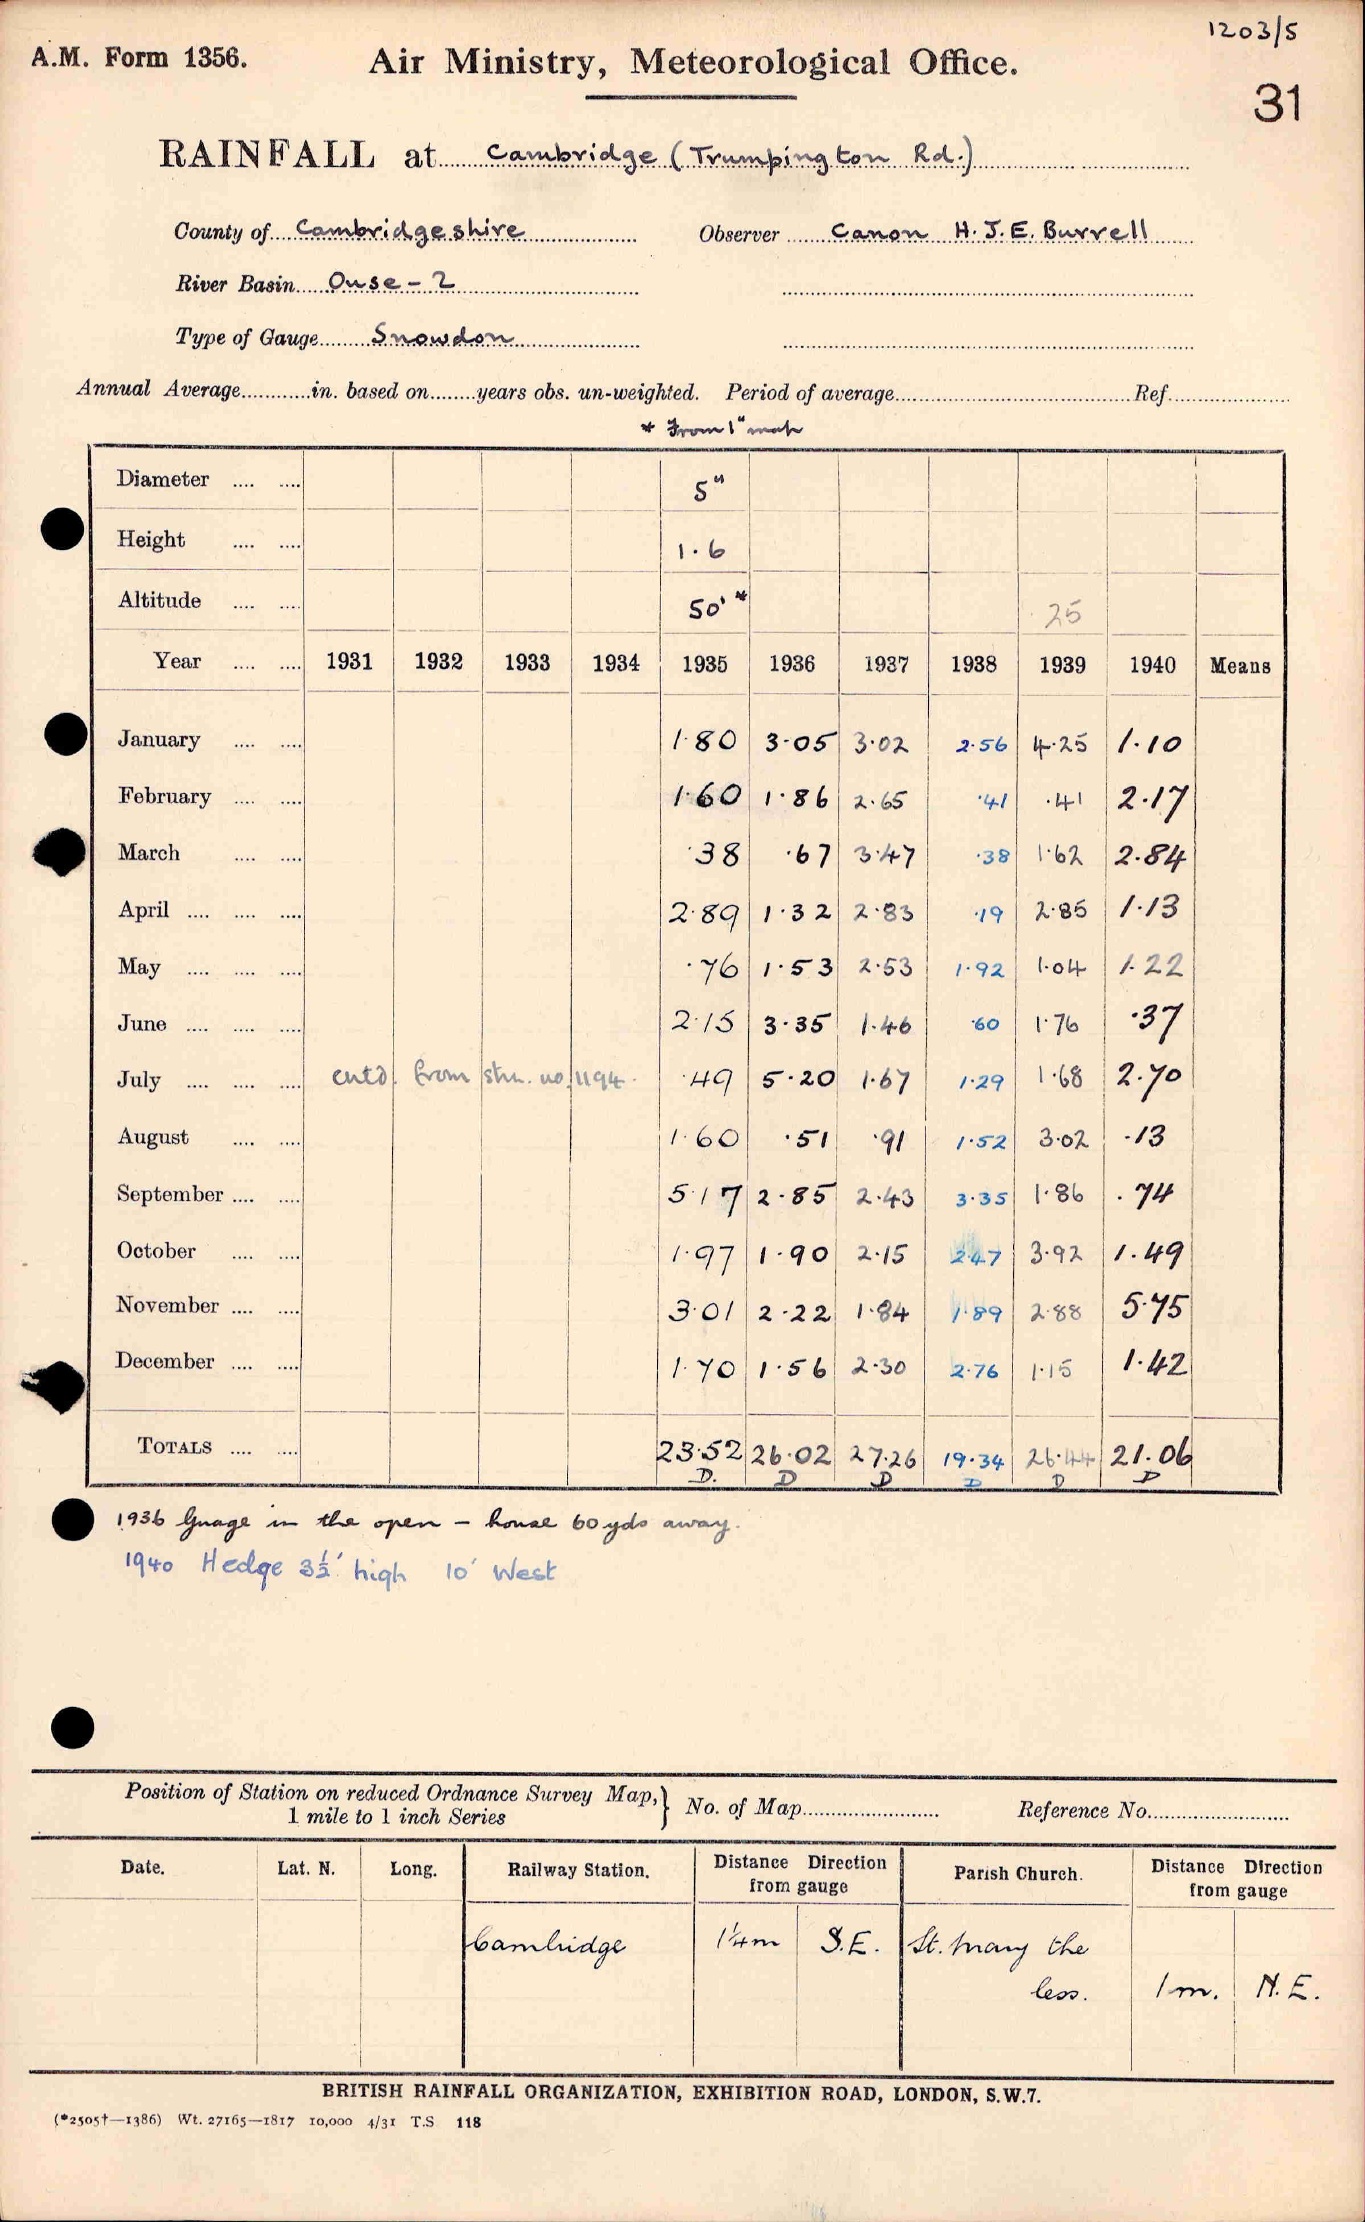 1203/5
A.M. Form 1356.
Air Ministry, Meteorological Office.
31
RAINFALL at Cambridge (Trumpington Rd.)
County of Cambridgeshire Observer Canon H.J.E. Burrell
River Basin Ouse - 2
Type of Gauge Snowdon
Annual Average............in. based on........years obs. un-weighted. Period of average.............................. Ref.....................
* From 1" map
Diameter .... .... 5"
Height .... .... 1.6
Altitude .... .... 50' * 25
Year .... .... 1931 1932 1933 1934 1935 1936 1937 1938 1939 1940 Means
January .... .... 1.80 3.05 3.02 2.56 4.25 1.10
February .... .... 1.60 1.86 2.65 .41 .41 2.17
March .... .... .38 .67 3.47 .38 1.62 2.84
April .... .... .... 2.89 1.32 2.83 .19 2.85 1.13
May .... .... .... .76 1.53 2.53 1.92 1.04 1.22
June .... .... .... 2.15 3.35 1.46 .60 1.76 .37
July .... .... .... cntd. from stn. no. 1194. .49 5.20 1.67 1.29 1.68 2.70
August .... .... 1.60 .51 .91 1.52 3.02 .13
September .... .... 5.17 2.85 2.43 3.35 1.86 .74
October .... .... 1.97 1.90 2.15 2.47 3.92 1.49
November .... .... 3.01 2.22 1.84 1.89 2.88 5.75
December .... .... 1.70 1.56 2.30 2.76 1.15 1.42
TOTALS .... .... 23.52 26.02 27.26 19.34 26.44 21.06
D. D D D D D
1936 Guage in the open - house 60 yds away.
1940 Hedge 3½' high 10' West
Position of Station on reduced Ordnance Survey Map, } No. of Map........................ Reference No.........................
1 mile to 1 inch Series
Date. Lat. N. Long. Railway Station. Distance Direction from gauge Parish Church. Distance Direction from gauge
Cambridge 1¼m S.E. St. Mary the
less. 1 m. N.E.
BRITISH RAINFALL ORGANIZATION, EXHIBITION ROAD, LONDON, S.W.7.
(*2505†—1386) Wt. 27165—1817 10,000 4/31 T.S 118